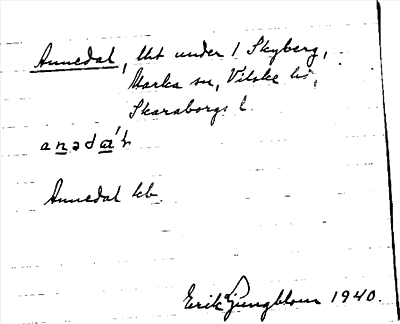 Annedal, lht under 1 Skyberg,
Marka sn, Vilske hd,
Skaraborgs l.
anədá'l
Annedal kb.
Erik Ljungblom 1940.